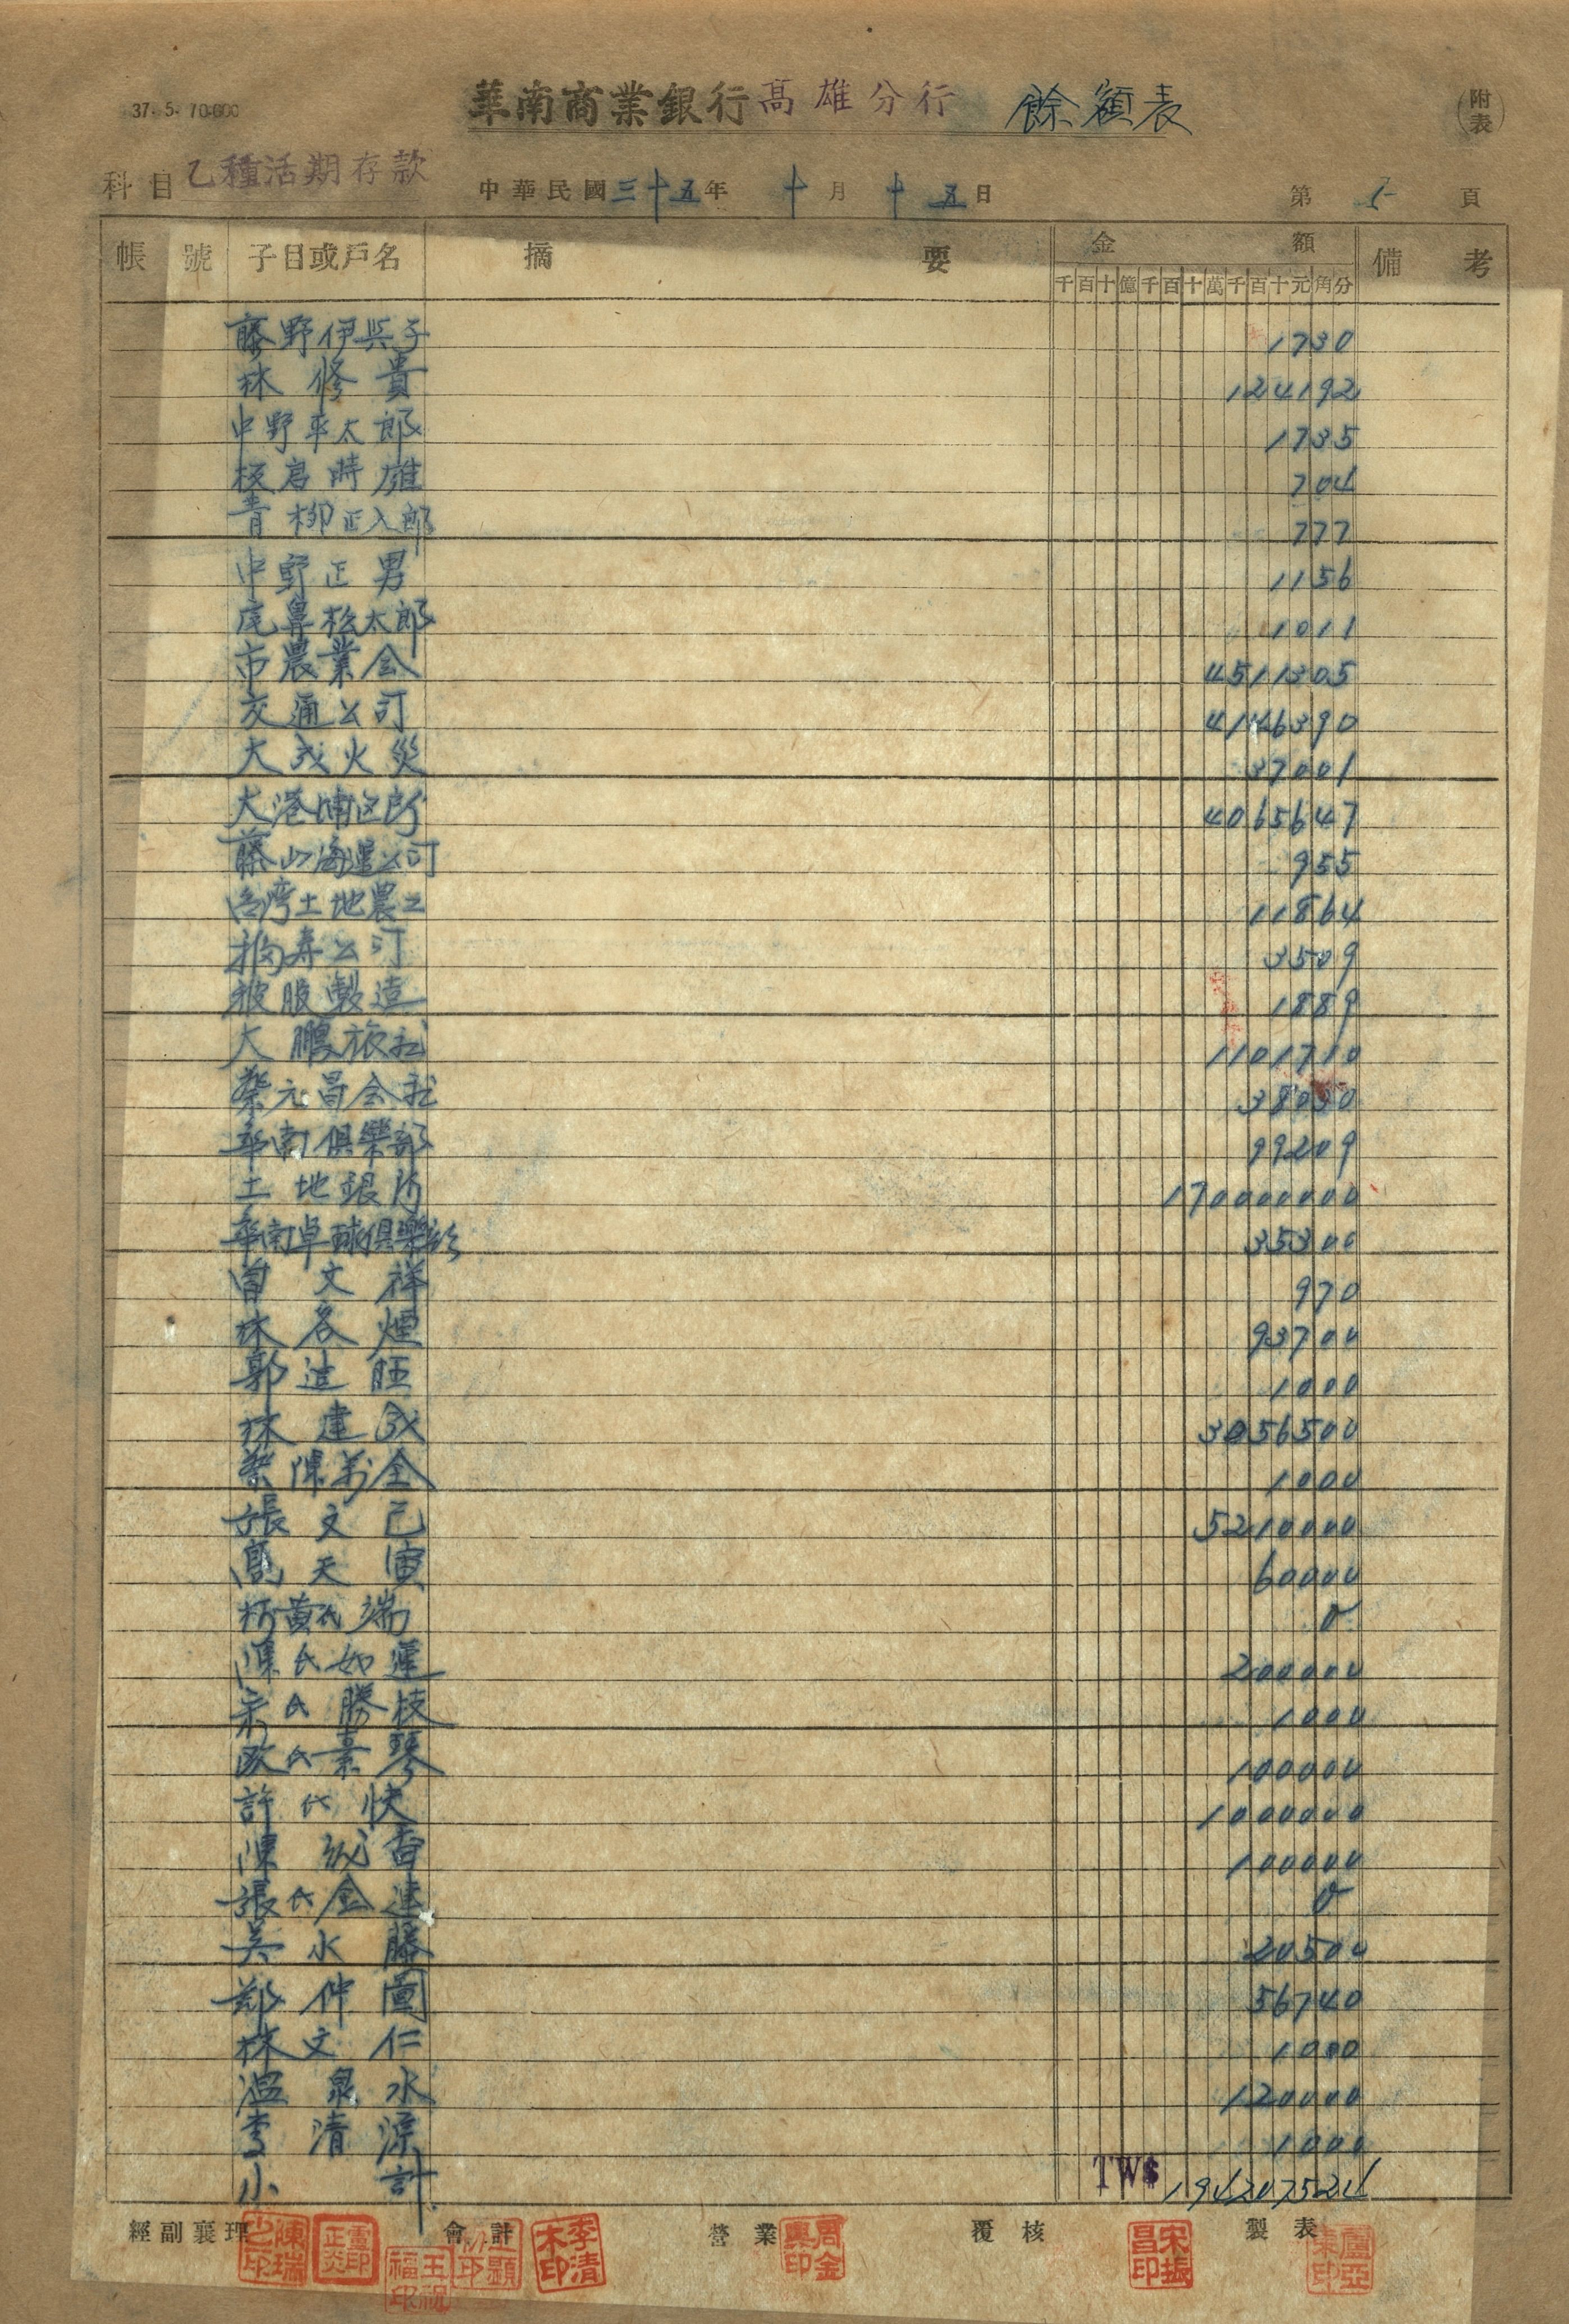 37. 5. 70.600
華南商業銀行高雄分行 餘額表
(附表)
科目 乙種活期存款 中華民國三十五年 十月 十五日 第 5 頁
帳號 子目或戶名 摘要 金額 備考
千百十億千百十萬千百十元角分
藤野伊與子 1730
林修貴 124192
中野平太郎 1735
時雄 704
青柳正八郎 777
中野正男 1156
尾鼻松太郎 1011
市農業会 4511305
交通公司 4146390
大成火災 37001
大港埔区所 4065647
藤山海運公司 955
台湾土地農工 11864
公司 3509
被服製造 1889
大鵬旅社 1101710
蔡元昌会社 38030
華南俱樂部 99209
土地銀行 170000000
華南卓球俱樂部 35300
曾文祥 970
林名煙 93700
郭造旺 1000
林建成 3056500
蔡陳萬金 1000
張文己 5210000
高天寅 60000
柯黃氏端 0
陳氏如蓮 200000
宋氏勝枝 1000
歐氏素琴 100000
許氏快 1000000
陳香 100000
張氏金連 0
吳水藤 20500
鄭伴圖 56740
林文仁 1000
溫泉水 120000
李清源 1000
小計 TW$ 194207524
經副襄理 會計 營業 覆核 製表
李清木印
周金興印
宋振昌印